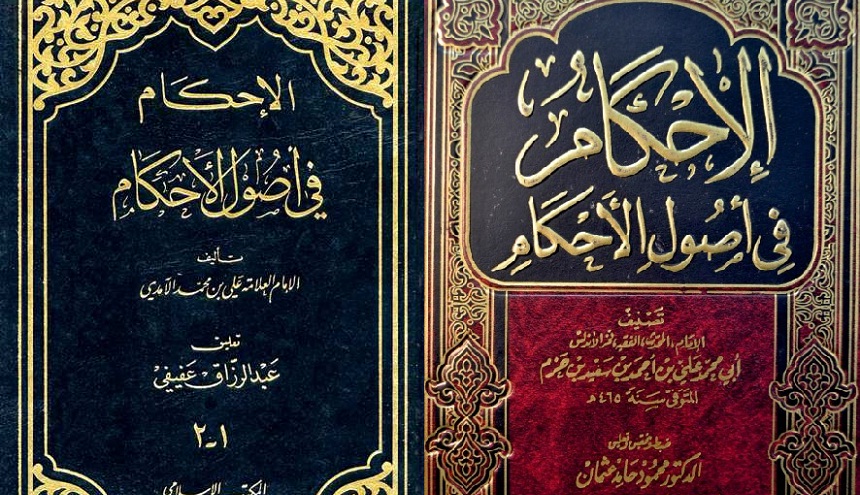 الإحكام
في أصول الأحكام
تأليف
الإمام العلامة علي بن محمد الآمدي
تعليق
عبد الرزاق عفيفي
١-٢
المكتب الإسلامي
الإحكام
في أصول الأحكام
تصنيف
الإمام، المحدث، الفقيه، فخر الأندلس
أبي محمد علي بن أحمد بن سعيد بن حزم
المتوفى سنة ٤٦٥ هـ
ضبط وتحقيق وتعليق
الدكتور محمود حامد عثمان